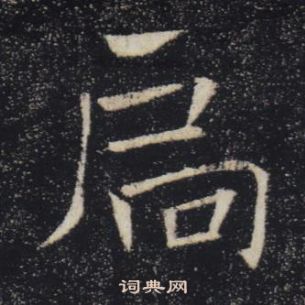 扃
词典网